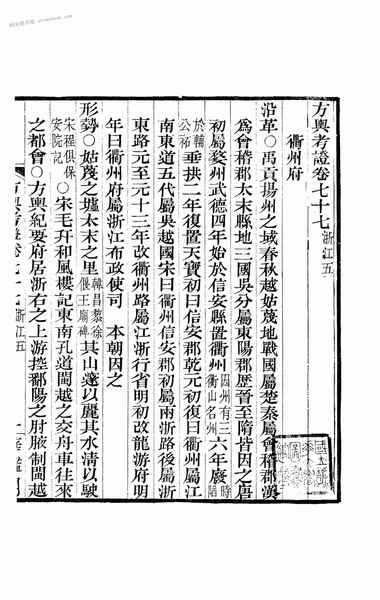 方輿考證卷七十七 浙江五
衢州府
沿革○禹貢揚州之域春秋越姑蔑地戰國屬楚秦屬會稽郡漢
爲會稽郡太末縣地三國吳分屬東陽郡歷晉至隋皆因之唐
初屬婺州武德四年始於信安縣置衢州 因州有三衢山名州 六年廢 時陷
於輔公祏 垂拱二年復置天寶初曰信安郡乾元初復曰衢州屬江
南東道五代屬吳越國宋曰衢州信安郡初屬兩浙路後屬浙
東路元至元十三年改衢州路屬江浙行省明初改龍游府明
年曰衢州府屬浙江布政使司 本朝因之
形勢○姑蔑之墟太末之里 韓昌黎徐偃王廟碑 其山邃以麗其水清以駛
宋程俱保安院記 ○宋毛幵和風樓記東南孔道閩越之交舟車往來
之都會○方輿紀要府居浙右之上游控鄱陽之肘腋制閩越
方輿考證卷七十七 浙江五